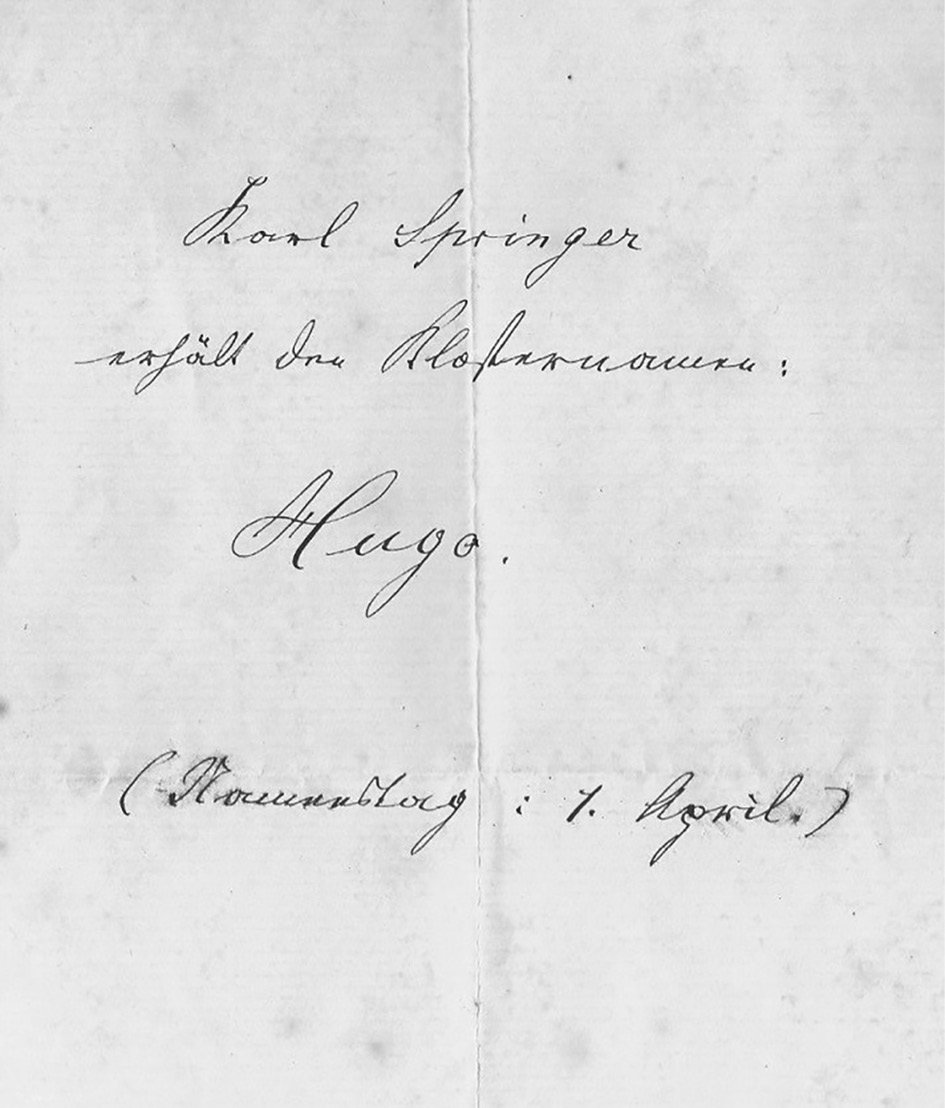 Karl Springer
erhält den Klosternamen:
Hugo.
(Namenstag : 1. April.)